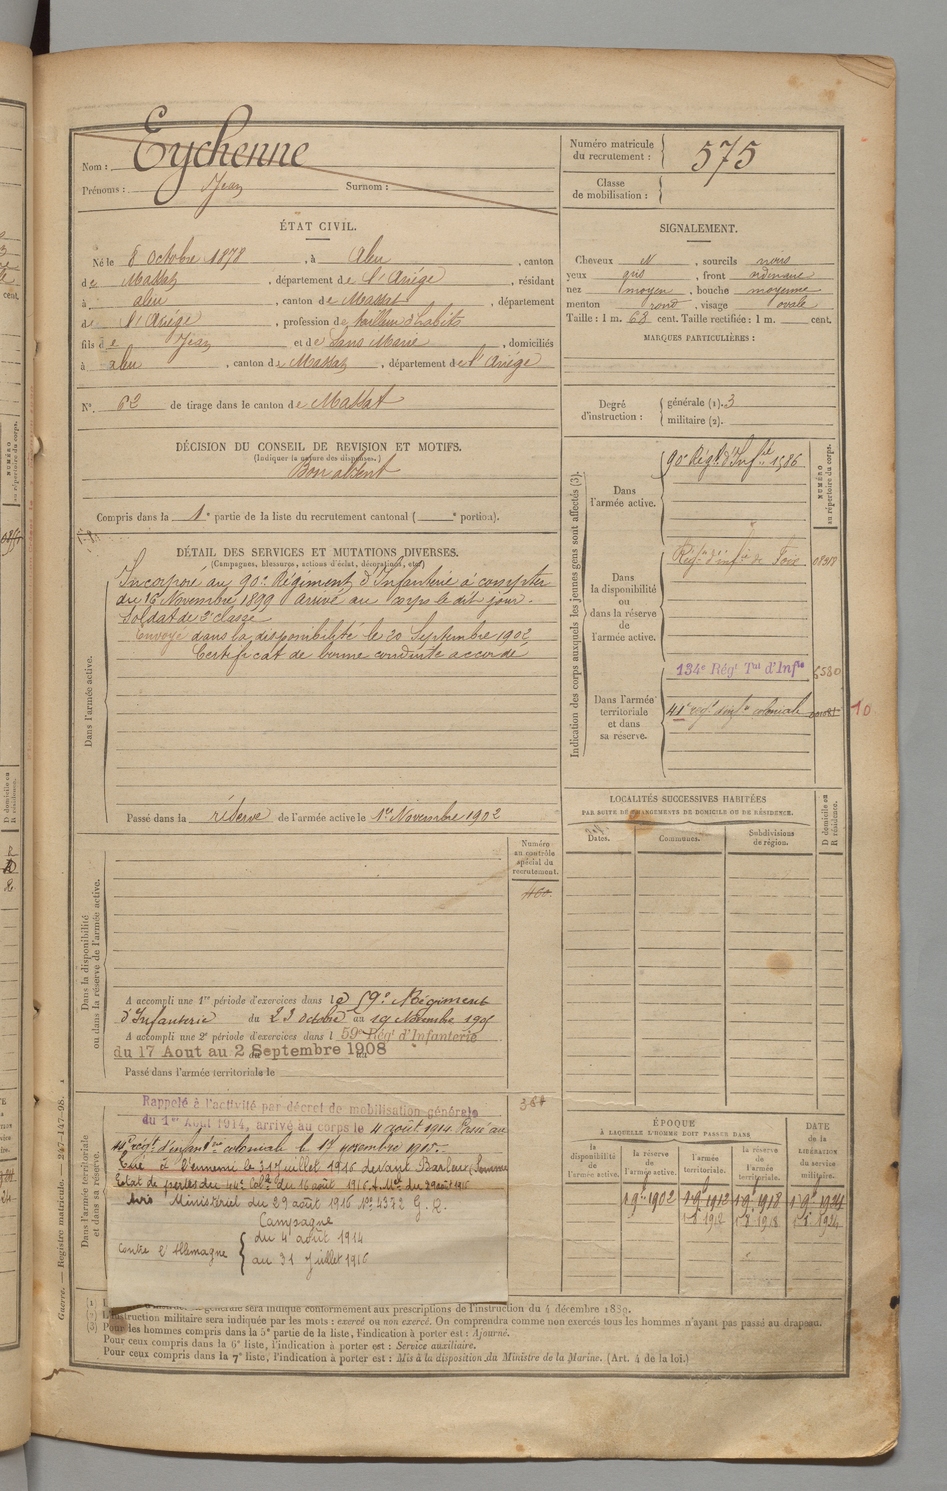 Nom : Eychenne
Prénoms : Jean Surnom :
Numéro matricule du recrutement : 575
Classe de mobilisation :
ÉTAT CIVIL.
Né le 8 Octobre 1878, à Aleu, canton
de Massat, département de l'Ariége, résidant
à aleu, canton de Massat, département
de l'Ariége, profession de tailleur d'habits
fils de Jean et de Sans Marie, domiciliés
à aleu, canton de Massat, département de l'Ariége
N° 62 de tirage dans le canton de Massat
SIGNALEMENT.
Cheveux N, sourcils noirs
yeux gris, front ordinaire
nez moyen, bouche moyenne
menton rond, visage ovale
Taille : 1 m. 68 cent. Taille rectifiée : 1 m. cent.
MARQUES PARTICULIÈRES :
Degré d'instruction : générale (1). 3
militaire (2).
DÉCISION DU CONSEIL DE REVISION ET MOTIFS.
(Indiquer la nature des dispenses.)
Bon absent
Compris dans la 1e partie de la liste du recrutement cantonal ( e portion).
DÉTAIL DES SERVICES ET MUTATIONS DIVERSES.
(Campagnes, blessures, actions d'éclat, décorations, etc.)
Dans l'armée active.
Incorporé au 90e Régiment d'Infanterie à compter
du 16 Novembre 1899 Arrivé au corps le dit jour.
Soldat de 2e classe
Envoyé dans la disponibilité le 20 Septembre 1902
Certificat de bonne conduite accordé
Passé dans la réserve de l'armée active le 1er Novembre 1902
Indication des corps auxquels les jeunes gens sont affectés (3).
NUMÉRO au répertoire du corps.
Dans l'armée active.
90e Régt d'Infie 1586
Dans la disponibilité ou dans la réserve de l'armée active.
Régt d'infie de Foix
Dans l'armée territoriale et dans sa réserve.
134e Régt Tal d'Infie 6580
41e régt d'infie coloniale
10
LOCALITÉS SUCCESSIVES HABITÉES
PAR SUITE DE CHANGEMENTS DE DOMICILE OU DE RÉSIDENCE.
Dates. Communes. Subdivisions de région. D domicile ou R résidence.
Dans la disponibilité ou dans la réserve de l'armée active.
Numéro au contrôle spécial du recrutement.
400
A accompli une 1re période d'exercices dans le 59e Régiment
d'Infanterie du 23 Octobre au 19 Novembre 1905
A accompli une 2e période d'exercices dans l 59e Rég' d'Infanterie
du 17 Aout au 2 Septembre 1908
Passé dans l'armée territoriale le
Dans l'armée territoriale et dans sa réserve.
Rappelé à l'activité par décret de mobilisation générale
du 1er Aout 1914, arrivé au corps le 4 août 1914. Passé au
44e régt d'infanterie coloniale le 17 novembre 1915.
Tué à l'ennemi le 31 juillet 1916 devant Barleux (Somme
Etat de pertes du 44e Colal du 16 août 1916 A. Mel du 29 août 1916
Avis Ministériel du 29 août 1916 No 4372 G. R.
Campagne
Contre l'Allemagne du 4 août 1914
au 31 Juillet 1916
ÉPOQUE
À LAQUELLE L'HOMME DOIT PASSER DANS
la disponibilité de l'armée active. la réserve de l'armée active. l'armée territoriale. la réserve de l'armée territoriale.
DATE de la LIBÉRATION du service militaire.
1 9bre 1902 1 9bre 1912 1 9bre 1918 1 9bre 1924
1912 1918 1924
instruction générale sera indiqué conformément aux prescriptions de l'instruction du 4 décembre 1889.
(2) L'instruction militaire sera indiquée par les mots : exercé ou non exercé. On comprendra comme non exercés tous les hommes n'ayant pas passé au drapeau.
(3) Pour les hommes compris dans la 5e partie de la liste, l'indication à porter est : Ajourné.
Pour ceux compris dans la 6e liste, l'indication à porter est : Service auxiliaire.
Pour ceux compris dans la 7e liste, l'indication à porter est : Mis à la disposition du Ministre de la Marine. (Art. 4 de la loi.)
Guerre. — Registre matricule. — 247-147-98.